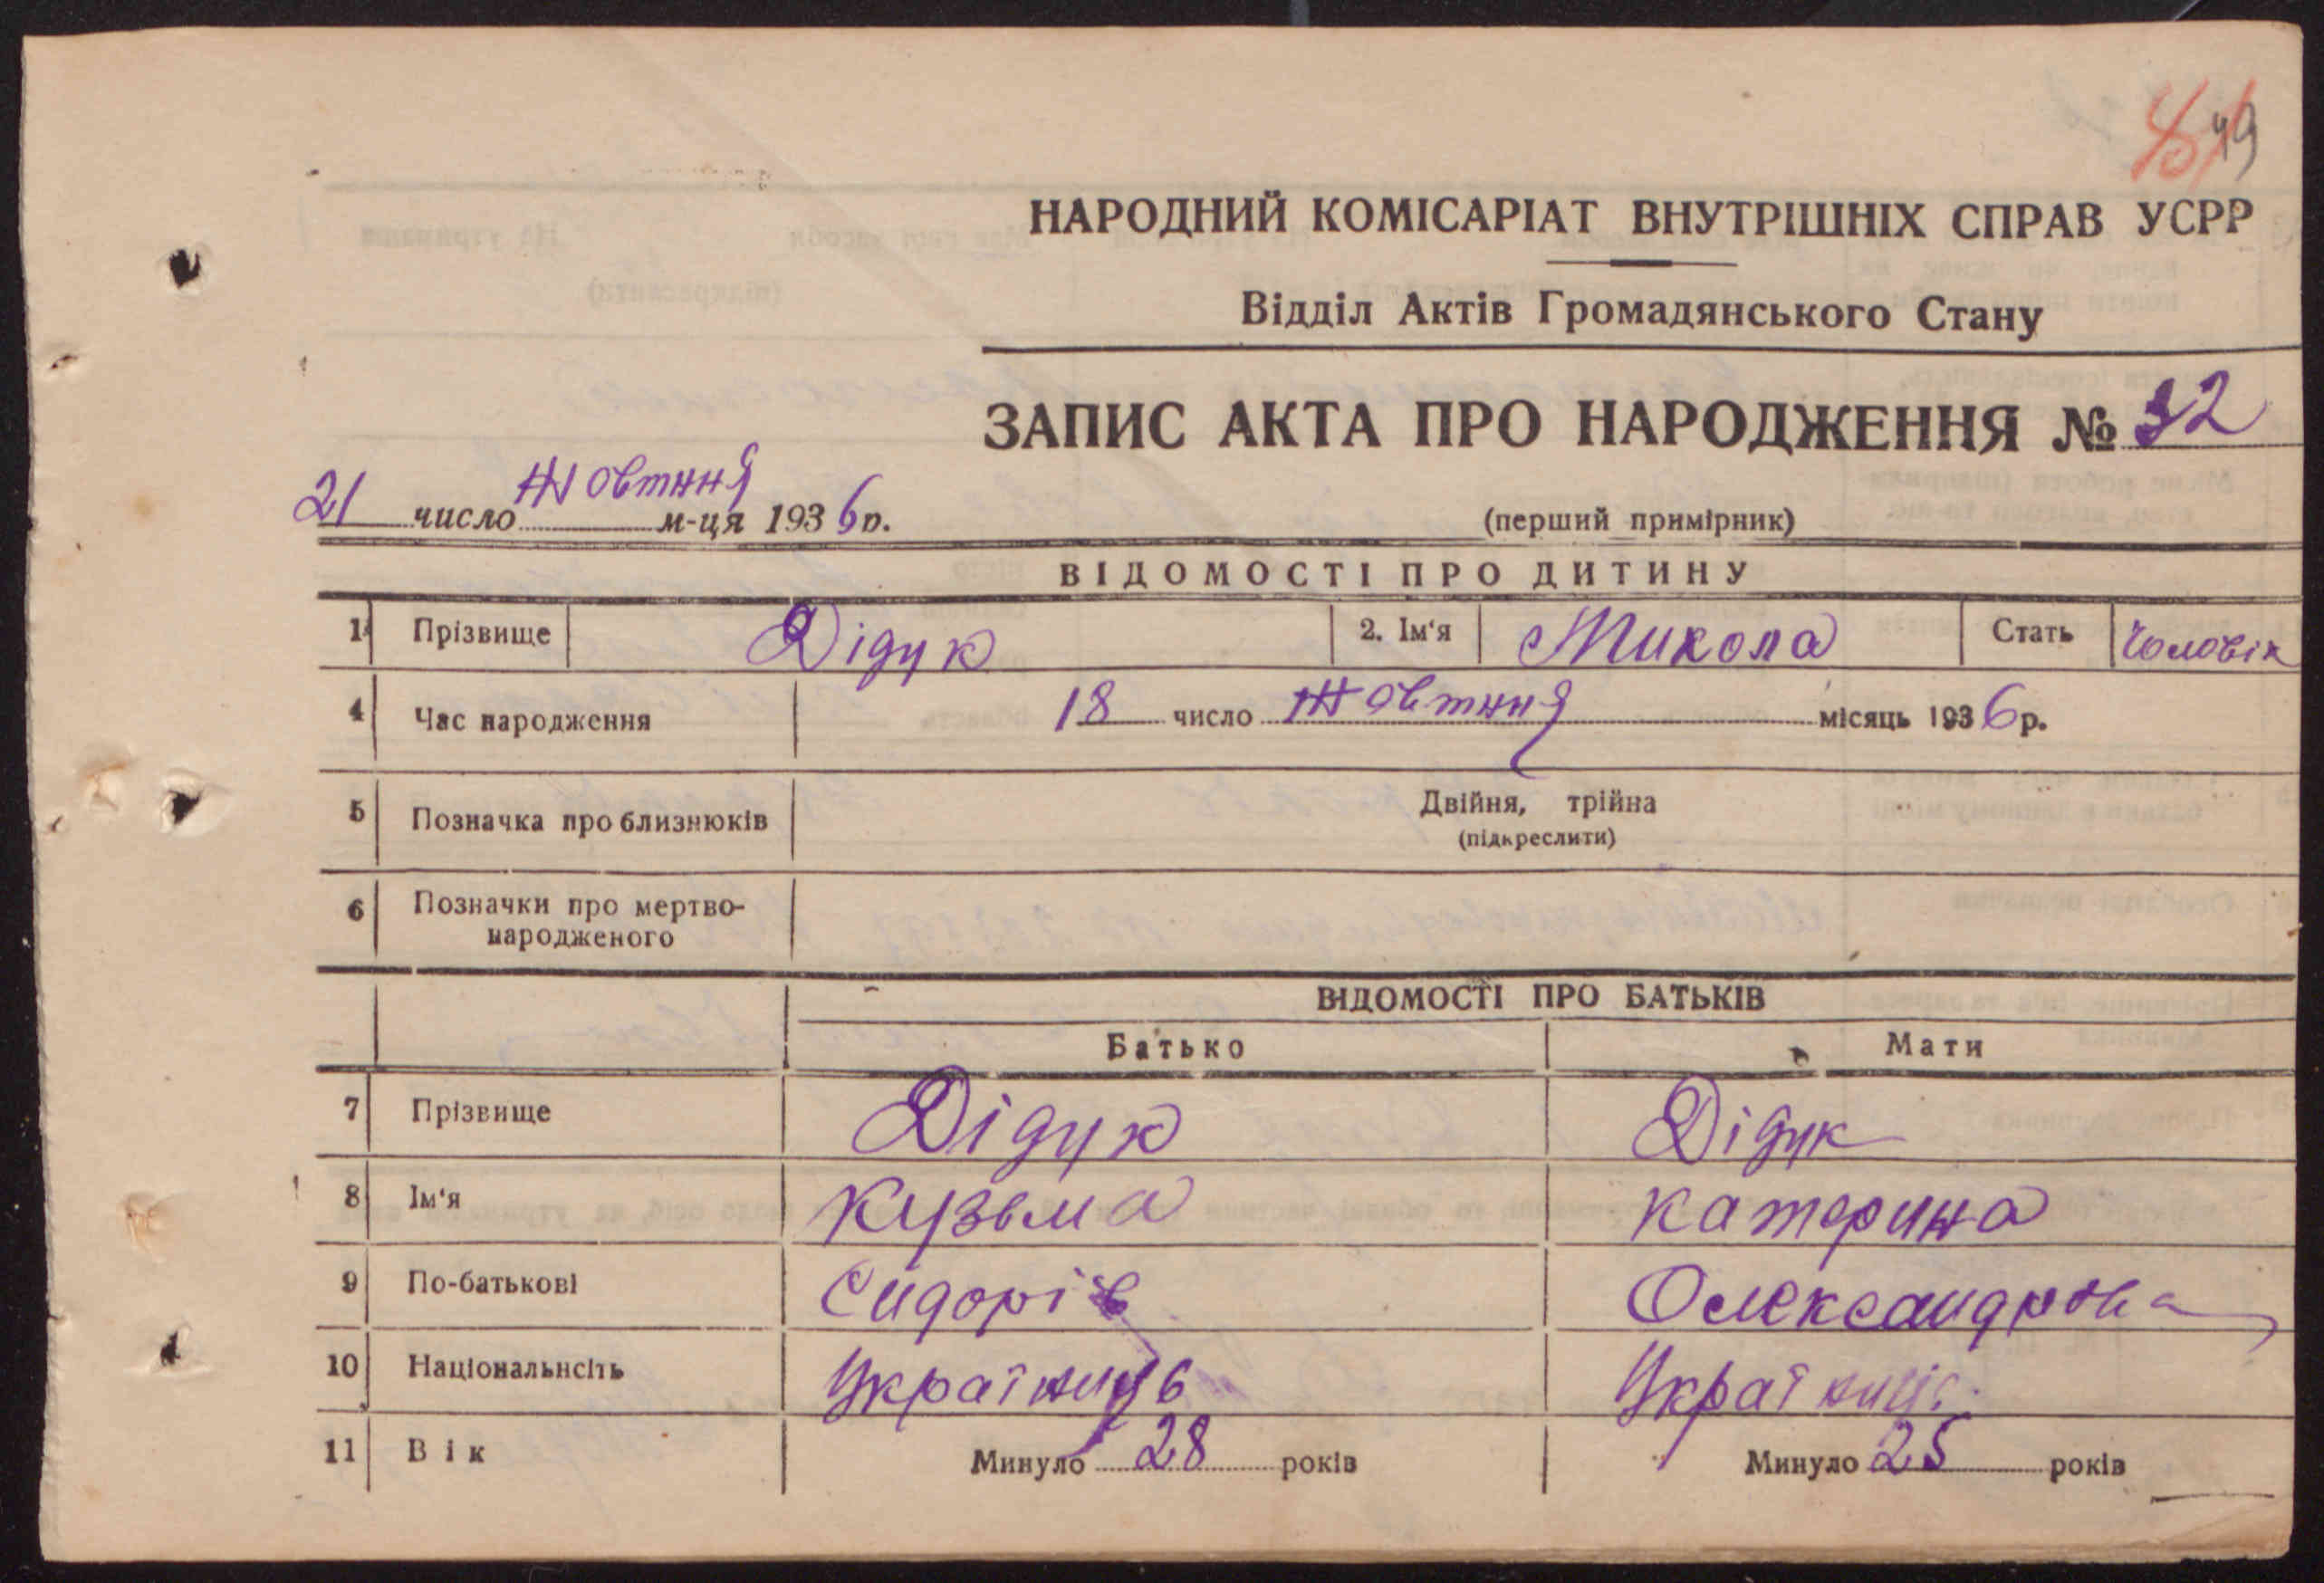 49
НАРОДНИЙ КОМІСАРІАТ ВНУТРІШНІХ СПРАВ УСРР
Відділ Актів Громадянського Стану
ЗАПИС АКТА ПРО НАРОДЖЕННЯ № 32
21 число Жовтня м-ця 1936 р.
(перший примірник)
ВІДОМОСТІ ПРО ДИТИНУ
1 Прізвище Дідук 2. Ім'я Микола Стать Чоловік
4 Час народження 18 число Жовтня місяць 1936 р.
5 Позначка про близнюків Двійня, трійна
(підкреслити)
6 Позначки про мертво-
народженого
ВІДОМОСТІ ПРО БАТЬКІВ
Батько Мати
7 Прізвище Дідук Дідук
8 Ім'я Кузьма Катерина
9 По-батькові Сидорів Олександровна
10 Національнсіть Україниць Украініця
11 Вік Минуло 28 років Минуло 25 років